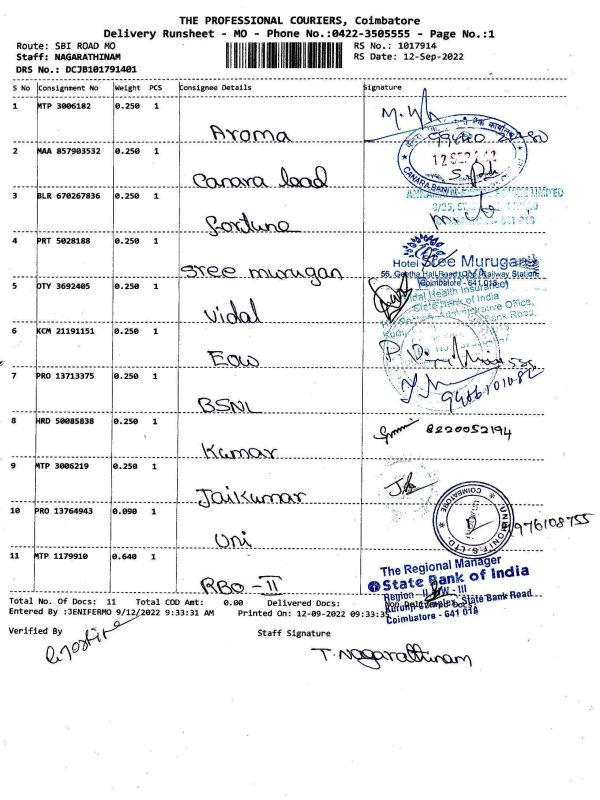 THE PROFESSIONAL COURIERS, Coimbatore
Delivery Runsheet - MO - Phone No.:0422-3505555 - Page No.:1
Route: SBI ROAD MO RS No.: 1017914
Staff: NAGARATHINAM RS Date: 12-Sep-2022
DRS No.: DCJB101791401
S No Consignment No Weight PCS Consignee Details Signature
1 MTP 3006182 0.250 1
Aroma
2 MAA 857903532 0.250 1
12 SEP
CANARA BANK
Canara lead
3 BLR 670267836 0.250 1
fortune
641 018
4 PRT 5028188 0.250 1
Hotel Sree Murugan
Sree murugan
56, Geetha Hall Road, Railway Station
Coimbatore - 641 018
5 OTY 3692405 0.250 1
Vidal Health Insurance
State Bank of India
Administrative Office,
Vidal
Bank Road,
6 KCM 21191151 0.250 1
Eow
7 PRO 13713375 0.250 1
9486101082
BSNL
8 HRD 50085838 0.250 1
8220052194
Kumar
9 MTP 3006219 0.250 1
Jaikumar
10 PRO 13764943 0.090 1
COIMBATORE
976108755
Uni
11 MTP 1179910 0.640 1
The Regional Manager
State Bank of India
RBO - II
Region - II
State Bank Road
Coimbatore - 641 018
Total No. Of Docs: 11 Total COD Amt: 0.00 Delivered Docs:
Entered By :JENIFERMO 9/12/2022 9:33:31 AM Printed On: 12-09-2022 09:33:35
Verified By Staff Signature
T. Nagarathinam